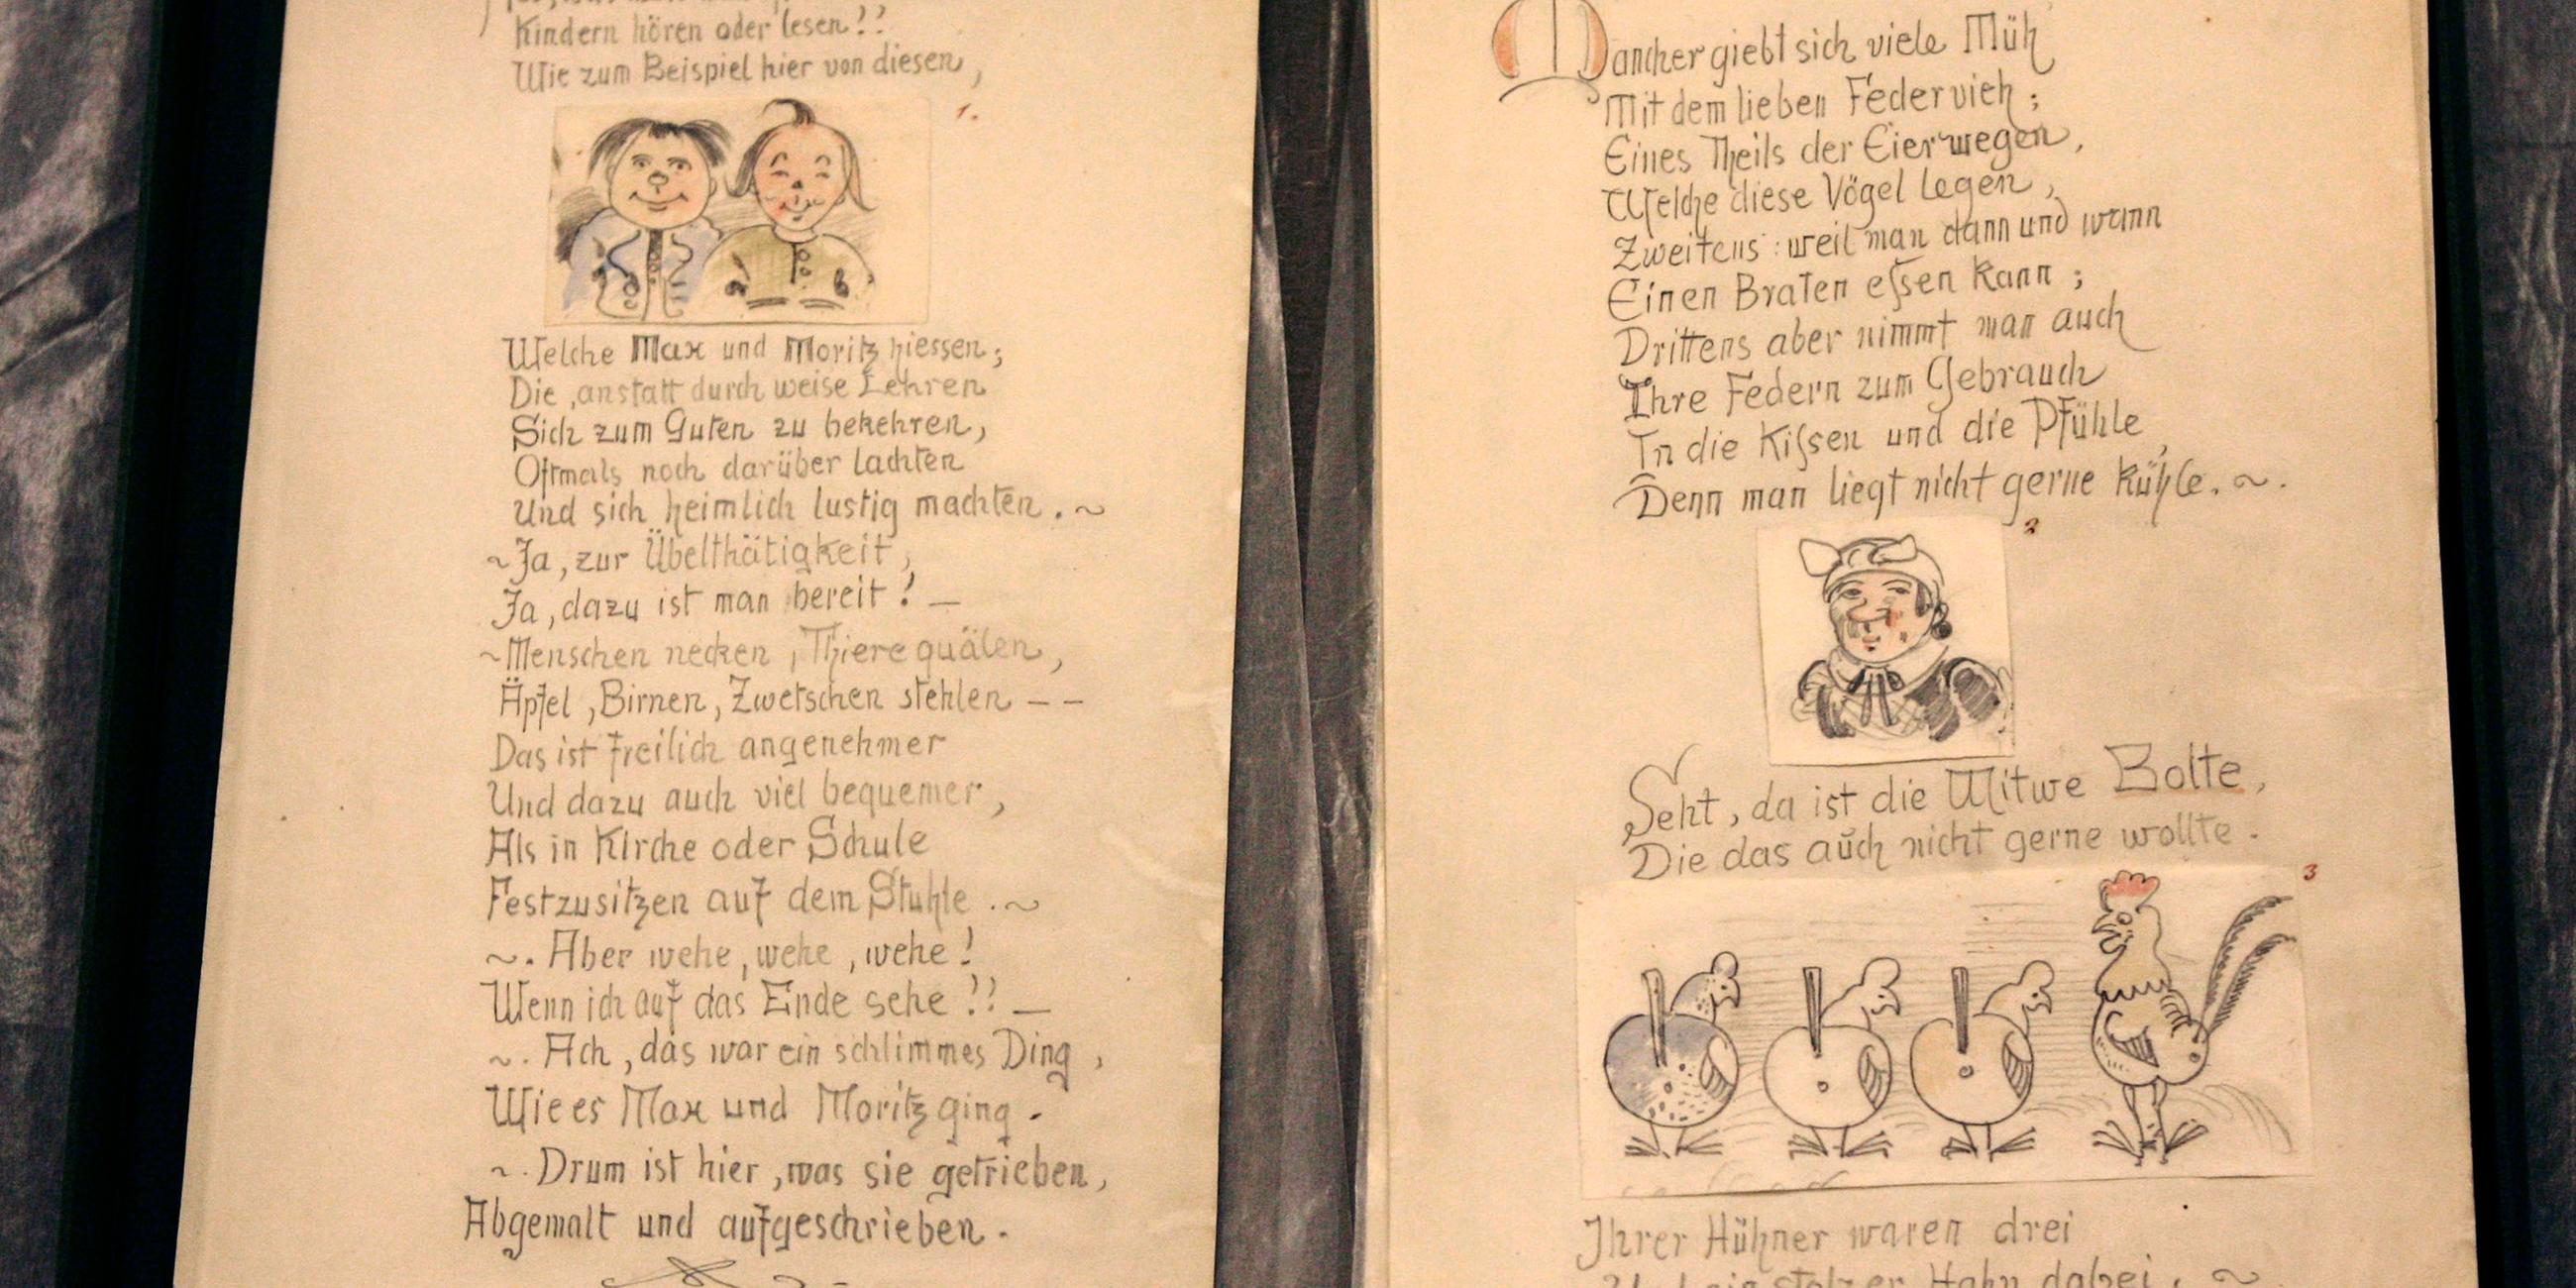 Kindern hören oder lesen!?
Wie zum Beispiel hier von diesen,
1.
Welche Max und Moritz hiessen;
Die, anstatt durch weise Lehren
Sich zum Guten zu bekehren,
Oftmals noch darüber lachten
Und sich heimlich lustig machten. ~
~ Ja, zur Übelthätigkeit,
Ja, dazu ist man bereit! —
~ Menschen necken, Thiere quälen,
Äpfel, Birnen, Zwetschen stehlen – –
Das ist freilich angenehmer
Und dazu auch viel bequemer,
Als in Kirche oder Schule
Festzusitzen auf dem Stuhle. ~
~. Aber wehe, wehe, wehe!
Wenn ich auf das Ende sehe!! —
~. Ach, das war ein schlimmes Ding,
Wie es Max und Moritz ging.
~. Drum ist hier, was sie getrieben,
Abgemalt und aufgeschrieben.
Mancher giebt sich viele Müh
Mit dem lieben Federvieh;
Eines Theils der Eier wegen,
Welche diese Vögel legen,
Zweitens: weil man dann und wann
Einen Braten eſsen kann;
Drittens aber nimmt man auch
Ihre Federn zum Gebrauch
In die Kiſsen und die Pfühle,
Denn man liegt nicht gerne kühle. ~.
2
Seht, da ist die Witwe Bolte,
Die das auch nicht gerne wollte.
3
Ihrer Hühner waren drei
Und ein stolzer Hahn dabei. ~